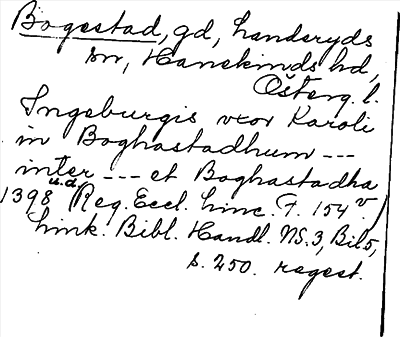 Bogestad, gd, Landeryds
sn, Hanekinds hd,
Österg. l.
Ingeburgis vxor Karoli
in Boghastadhum ---
inter --- et Boghastadha
1398 u.d. Reg. Eccl. Linc. F. 154 v./
Link. Bibl. Handl. NS. 3, Bil 5,
s. 250. regest.